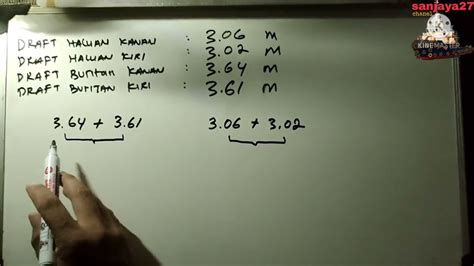 sanjaya27
channel
KINEMASTER
DRAFT HALUAN KANAN : 3.06 m
DRAFT HALUAN KIRI : 3.02 m
DRAFT BURITAN KANAN : 3.64 m
DRAFT BURITAN KIRI : 3.61 m
3.64 + 3.61 3.06 + 3.02